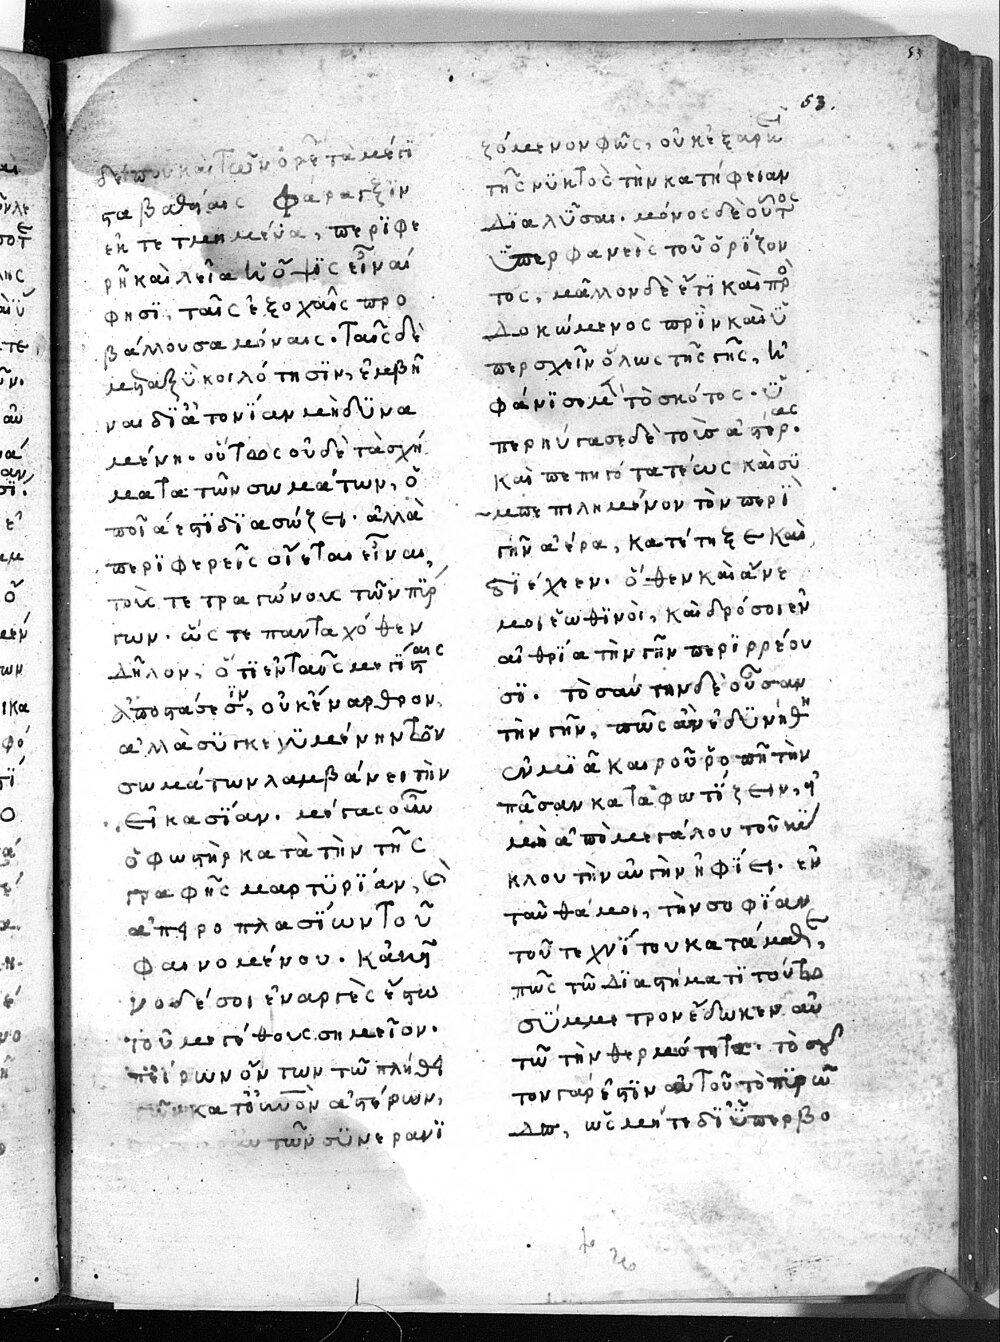 δέ που καὶ τῶν ὀρέων τὰ μέγι
στα βαθείαις φάραγξϊν
ἐκτετμημένα, περϊφε
ρῆ καὶ λεῖα ἡ ὄψϊς εἶναί
φησϊ, ταῖς ἐξοχαῖς προσ
βάλλουσα μόναις. ταῖς δὲ
μεταξὺ κοιλότησϊν, ἐμβῆ
ναι δϊ' ἀτονΐαν μὴ δϋνα
μένη. οὕτως οὐδὲ τὰ σχή
ματα τῶν σωμάτων, ὁ
ποῖα ἐστϊ δϊασώζει. ἀλλὰ
περϊφερεῖς οἴεται εἶναι,
τοὺς τετραγώνους τῶν πύρ
γων. ὥστε πανταχόθεν
δῆλον, ὅτϊ ἐν ταῖς μεγίσταις
ἀποστάσεσϊν, οὐκ ἔναρθρον,
ἀλλὰ σϋγκεχϋμένην τῶν
σωμάτων λαμβάνει τὴν
εἰκασΐαν. μέγας οὖν
ὁ φωστὴρ κατὰ τὴν τῆς
γραφῆς μαρτϋρΐαν, καὶ
ἀπειροπλασΐων τοῦ
φαινομένου. κἀκεῖ
νο δέ σοι ἐναργὲς ἔστω
τοῦ μεγέθους σημεῖον.
ἀπείρων ὄντων τῶ πλήθει
τῶν κατ' οὐρανὸν ἀστέρων,
τῶν σϋνερανϊ
53
53.
ζόμενον φῶς, οὐκ ἐξαρκεῖ
τῆς νϋκτὸς τὴν κατήφειαν
δϊαλῦσαι. μόνος δὲ οὗτος
ὑπερφανεὶς τοῦ ὁρΐζον
τος, μᾶλλον δὲ ἔτϊ καὶ προσ
δοκώμενος πρὶν καὶ ὑ
περσχεῖν ὅλως τῆς γῆς, ἠ
φάνϊσε μὲν τὸ σκότος. ὑ
περηύγασε δὲ τοὺς ἀστέρας.
καὶ πεπηγότα τέως καὶ σϋ
μπεπιλημένον τὸν περὶ
γῆν ἀέρα, κατέτηξε καὶ
δϊέχεεν. ὅθεν καὶ ἄνε
μοι ἑωθϊνοὶ, καὶ δρόσοι ἐν
αἰθρία τὴν γῆν περϊρρέου
σϊ. τοσαύτην δὲ οὖσαν
τὴν γῆν, πῶς ἂν ἐδϋνήθη
ἐν μϊᾶ καιροῦ ῥοπῆ τὴν
πᾶσαν καταφωτΐζειν, εἰ
μὴ ἀπὸ μεγάλου τοῦ κύ
κλου τὴν αὐγὴν ἠφΐει. ἐν
ταῦθά μοι, τὴν σοφΐαν
τοῦ τεχνΐτου κατάμαθε,
πῶς τῶ δϊαστήματϊ τούτω
σύμμετρον ἔδωκεν αὐ
τῶ τὴν θερμότητα. τοσοῦ
τον γάρ ἐστϊν αὐτοῦ τὸ πϋρῶ
δες, ὡς μήτε δϊ' ὑπερβο